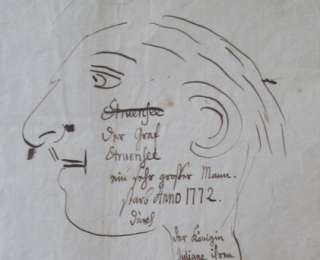 Struensee
Der Graf
Struensee
ein sehr großer Mann.
starb Anno 1772.
durch
der Königin
Juliane ihren